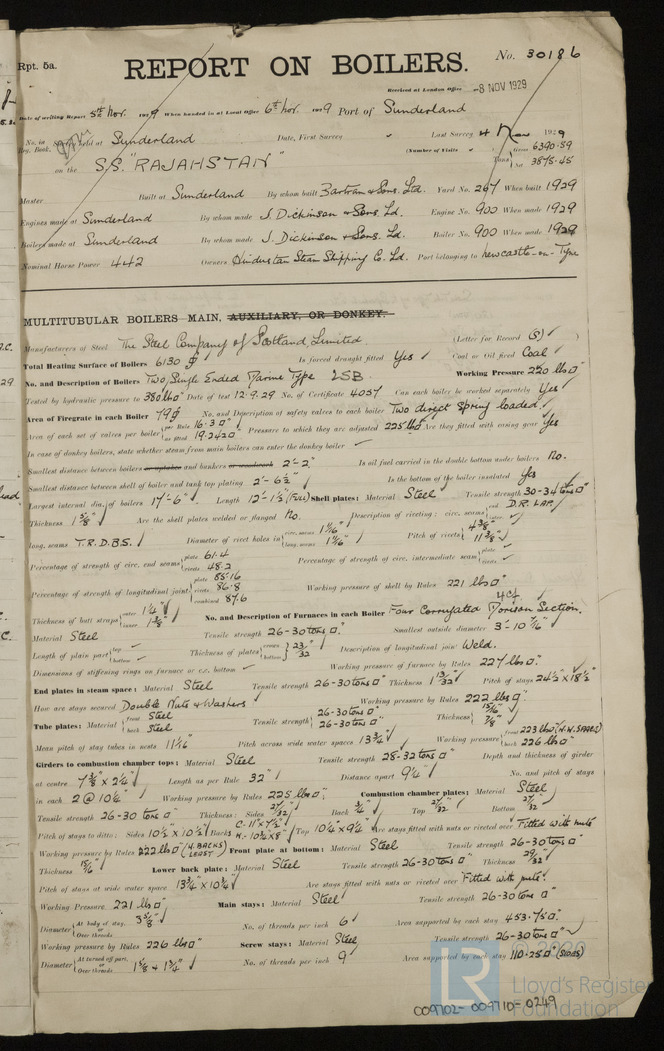 Rpt. 5a.
No. 30186
REPORT ON BOILERS.
Received at London Office -8 NOV 1929
Date of writing Report 5th Nov. 1929 When handed in at Local Office 6th Nov. 1929 Port of Sunderland
No. in Reg. Book. Survey held at Sunderland Date, First Survey Last Survey 4 Nov 1929
on the S.S. "RAJAHSTAN" (Number of Visits ) Tons Gross 6390.59 Net 3875.45
Master Built at Sunderland By whom built Bartram & Sons. Ltd. Yard No. 267 When built 1929
Engines made at Sunderland By whom made J. Dickinson & Sons. Ld. Engine No. 900 When made 1929
Boilers made at Sunderland By whom made J. Dickinson & Sons. Ld. Boiler No. 900 When made 1929
Nominal Horse Power 442 Owners Hindustan Steam Shipping Co. Ld. Port belonging to Newcastle-on-Tyne
MULTITUBULAR BOILERS MAIN, AUXILIARY, OR DONKEY.
Manufacturers of Steel The Steel Company of Scotland Limited (Letter for Record (S) )
Total Heating Surface of Boilers 6130 Is forced draught fitted Yes Coal or Oil fired Coal
No. and Description of Boilers Two Single Ended Marine Type 2SB Working Pressure 220 lbs
Tested by hydraulic pressure to 380 lbs Date of test 12.9.29 No. of Certificate 4057 Can each boiler be worked separately Yes
Area of Firegrate in each Boiler 79 No. and Description of safety valves to each boiler Two direct Spring loaded
Area of each set of valves per boiler per Rule 16.3 as fitted 19.242 Pressure to which they are adjusted 225 lbs Are they fitted with easing gear Yes
In case of donkey boilers, state whether steam from main boilers can enter the donkey boiler
Smallest distance between boilers or uptakes and bunkers or woodwork 2'-2" Is oil fuel carried in the double bottom under boilers No.
Smallest distance between shell of boiler and tank top plating 2'-6½" Is the bottom of the boiler insulated Yes
Largest internal dia. of boilers 17'-6" Length 12'-1½" (Full) Shell plates: Material Steel Tensile strength 30-34 tons
Thickness 1 5/8" Are the shell plates welded or flanged No. Description of riveting: circ. seams end D.R. LAP.
long. seams T.R.D.B.S. Diameter of rivet holes in circ. seams 1 11/16" long. seams 1 11/16" Pitch of rivets 4 3/8" 11 3/8"
Percentage of strength of circ. end seams plate 61.4 rivets 48.2 Percentage of strength of circ. intermediate seam plate rivets
Percentage of strength of longitudinal joint plate 85.16 rivets 86.8 combined 87.6 Working pressure of shell by Rules 221 lbs
Thickness of butt straps outer 1¼" inner 1 3/8" No. and Description of Furnaces in each Boiler Four Corrugated Morison Section.
Material Steel Tensile strength 26-30 tons Smallest outside diameter 3'-10 7/16"
Length of plain part top bottom Thickness of plates crown bottom 23/32 Description of longitudinal joint Weld.
Dimensions of stiffening rings on furnace or c.c. bottom Working pressure of furnace by Rules 227 lbs
End plates in steam space: Material Steel Tensile strength 26-30 tons Thickness 1 13/32" Pitch of stays 24½" x 18½"
How are stays secured Double Nuts & Washers Working pressure by Rules 222 lbs
Tube plates: Material front Steel back Steel Tensile strength 26-30 tons 26-30 tons Thickness 15/16" 7/8"
Mean pitch of stay tubes in nests 11 1/16" Pitch across wide water spaces 13¾" Working pressure front 223 lbs (W.W. SPACES) back 226 lbs
Girders to combustion chamber tops: Material Steel Tensile strength 28-32 tons Depth and thickness of girder
at centre 7 3/8" x 2¼" Length as per Rule 32" Distance apart 9¼" No. and pitch of stays
in each 2 @ 10¼" Working pressure by Rules 225 lbs Combustion chamber plates: Material Steel
Tensile strength 26-30 tons Thickness: Sides 27/32" Back ¾" Top 27/32" Bottom 27/32"
Pitch of stays to ditto: Sides 10½" x 10½" Backs C.-11" x 9½" W.-10¾" x 8" Top 10¼" x 9¼" Are stays fitted with nuts or riveted over Fitted with nuts
Working pressure by Rules 222 lbs (W. BACKS LEAST) Front plate at bottom: Material Steel Tensile strength 26-30 tons
Thickness 15/16" Lower back plate: Material Steel Tensile strength 26-30 tons Thickness 29/32"
Pitch of stays at wide water space 13¾" x 10¾" Are stays fitted with nuts or riveted over Fitted with nuts
Working Pressure 221 lbs Main stays: Material Steel Tensile strength 26-30 tons
Diameter At body of stay, or Over threads 3 5/8" No. of threads per inch 6 Area supported by each stay 453.75
Working pressure by Rules 226 lbs Screw stays: Material Steel Tensile strength 26-30 tons
Diameter At turned off part, or Over threads 1 5/8 & 1¾" No. of threads per inch 9 Area supported by each stay 110.25 (SIDES)
© 2020
LR
Lloyd's Register
Foundation
009702-009710-0249